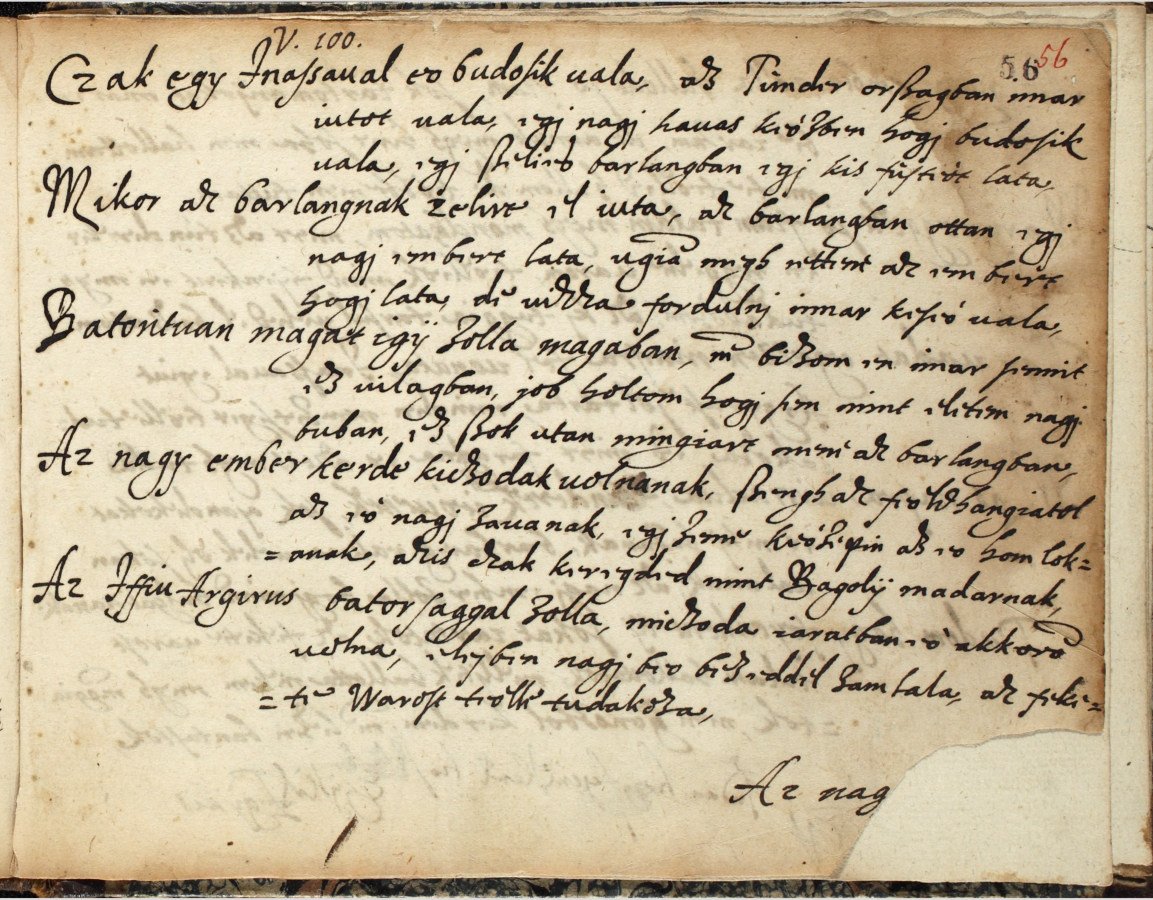 V. 100.
56 56
Czak egy Inassaual eo budosik uala, az Tünder orszagban imar
iutot uala, egj nagj hauas keözben hogj budosik
uala, egj szelies barlangban egj kis füstieöt lata,
Mikor az barlangnak zelire el iuta, az barlangban ottan egj
nagj embert lata, ugia megh ettent az embert
hogj lata, de uizza fordulnj immar keseö uala,
Batorituan magat igÿ zolla magaban, bizom en imar semit
ez uilagban, job holtom hogj sem mint eletem nagj
buban, ez szok utan mingiart mene az barlangban,
Az nagy ember kerde kiczodak uolnanak, szengh az feöld hangiatol
az eö nagj zauanak, egj zeme keözepin az eo hom lok=
=anak, azis czak keregded mint Bagolÿ madarnak,
Az Iffiu Argirus bator saggal zolla, miczoda iaratban eö akkoro
uolna, elejben nagj beo bezeddel zamlala, az feke=
=te Warost teölle tudakoza,
Az nag